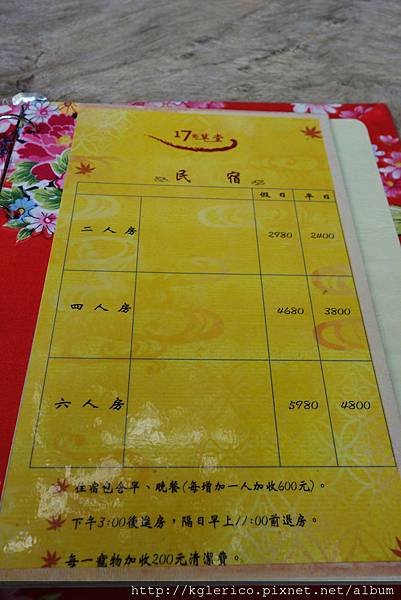 17老草堂
民宿
假日 平日
二人房 2980 2400
四人房 4680 3800
六人房 5980 4800
住宿包含早、晚餐(每增加一人加收600元)。
下午3:00後進房，隔日早上11:00前退房。
每一寵物加收200元清潔費。
http://kglerico.pixnet.net/album